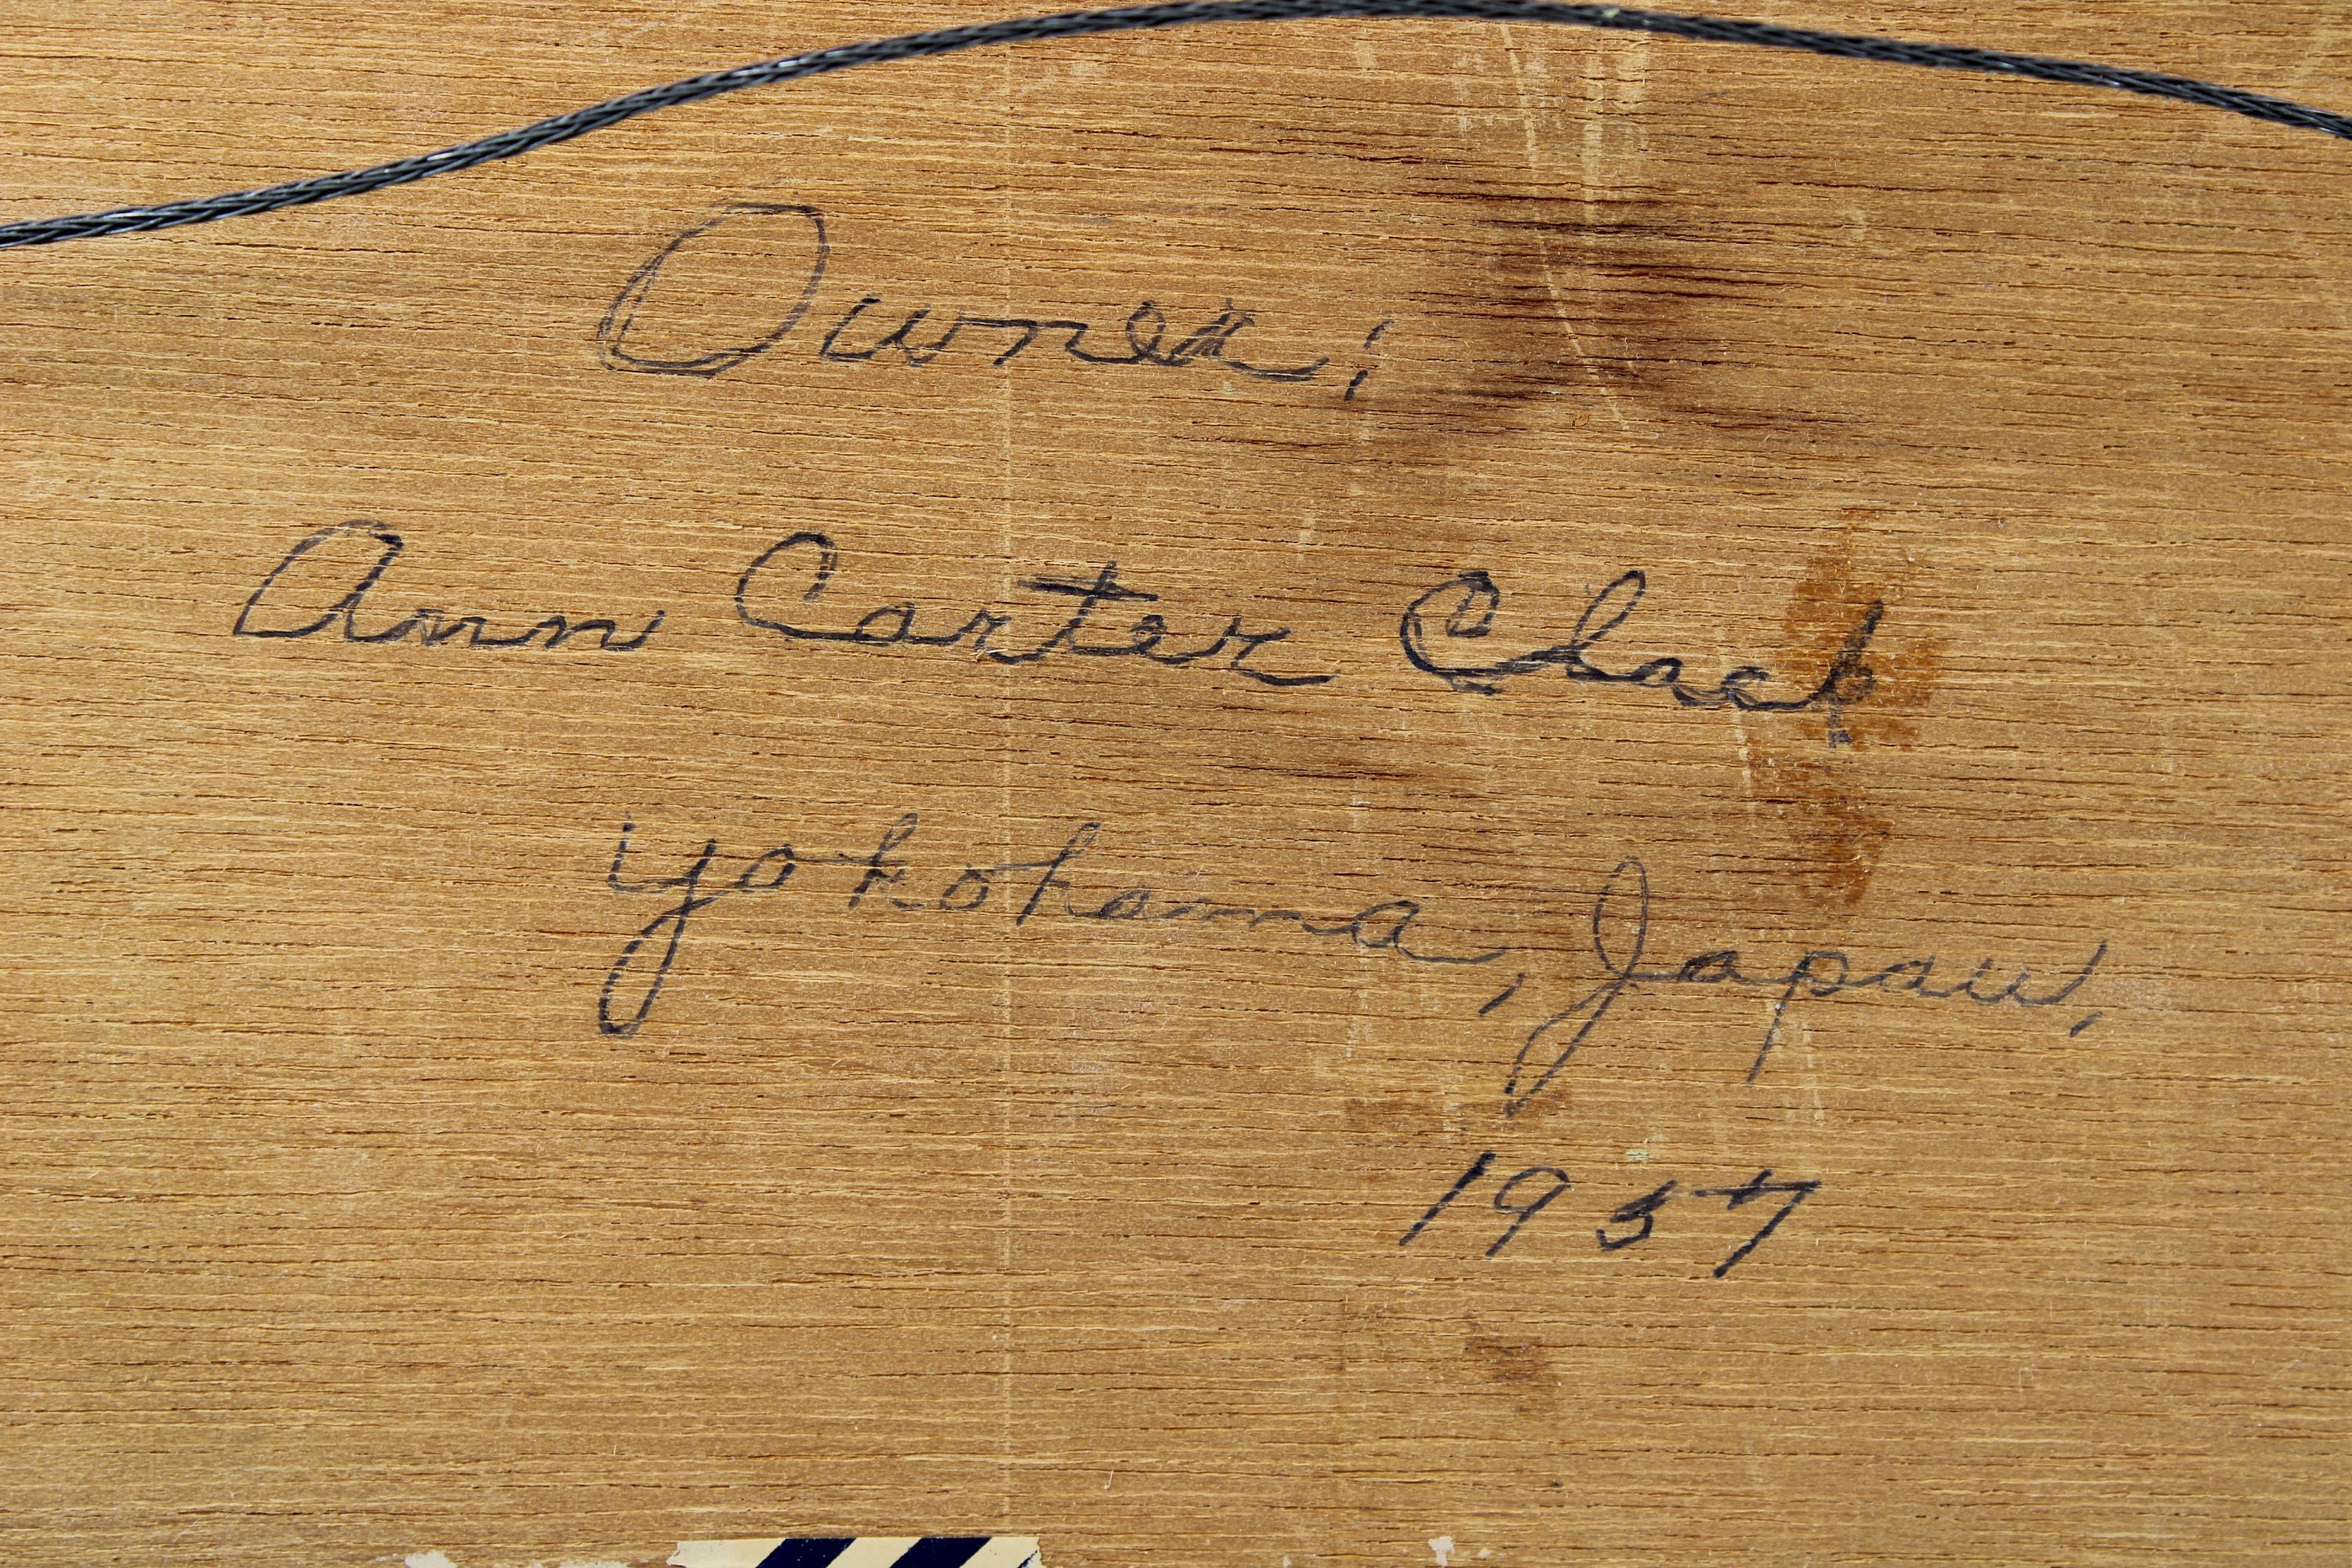 Owner:
Ann Carter Clack
Yokohama, Japan,
1957